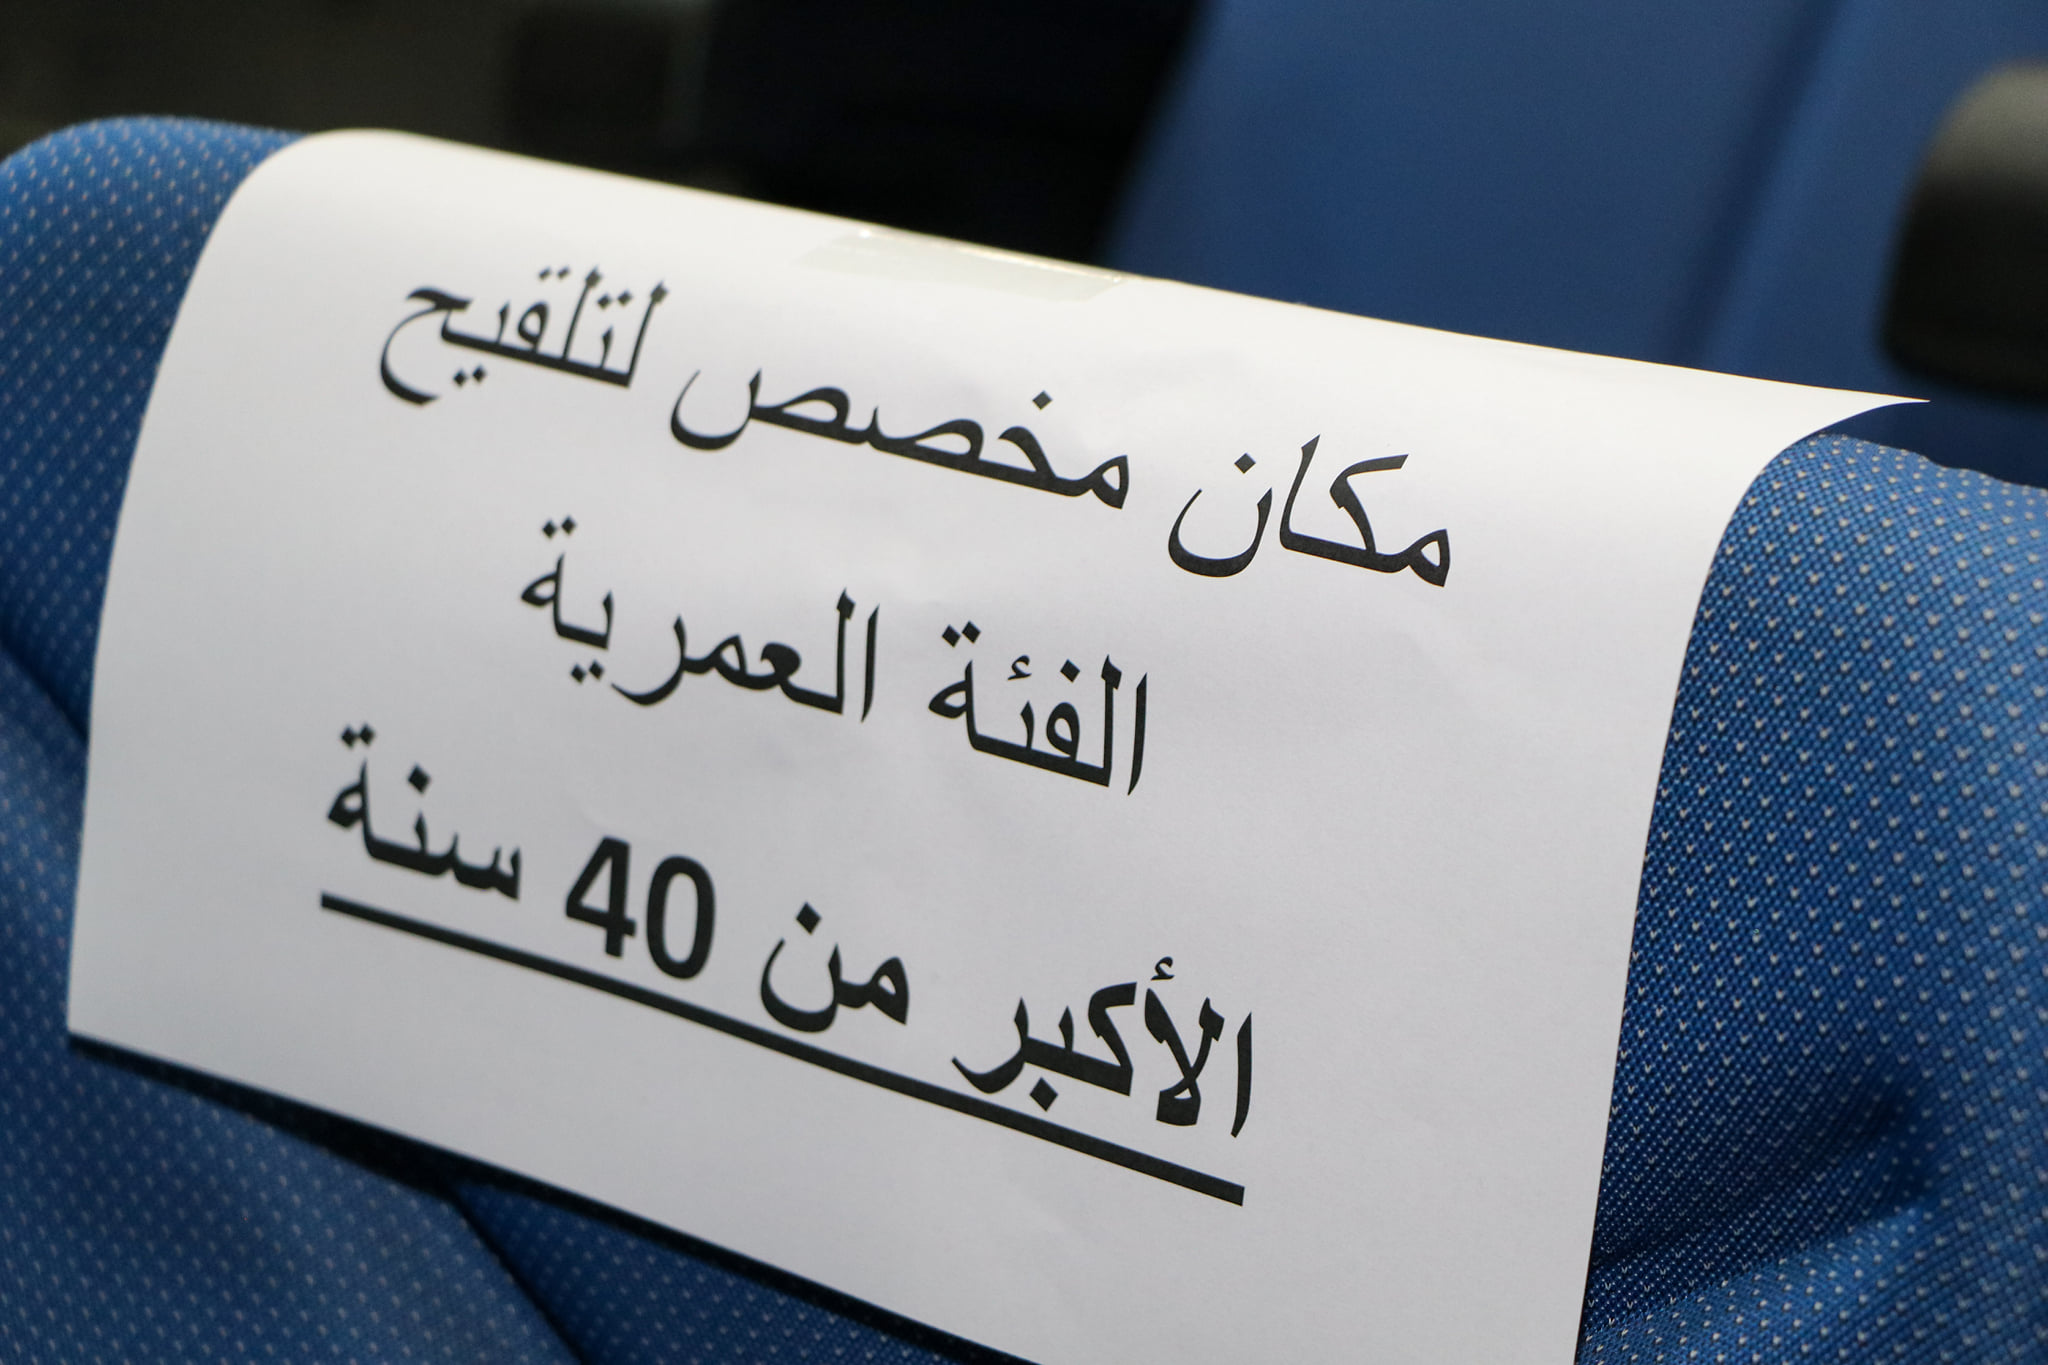 مكان مخصص لتلقيح
الفئة العمرية
الأكبر من 40 سنة